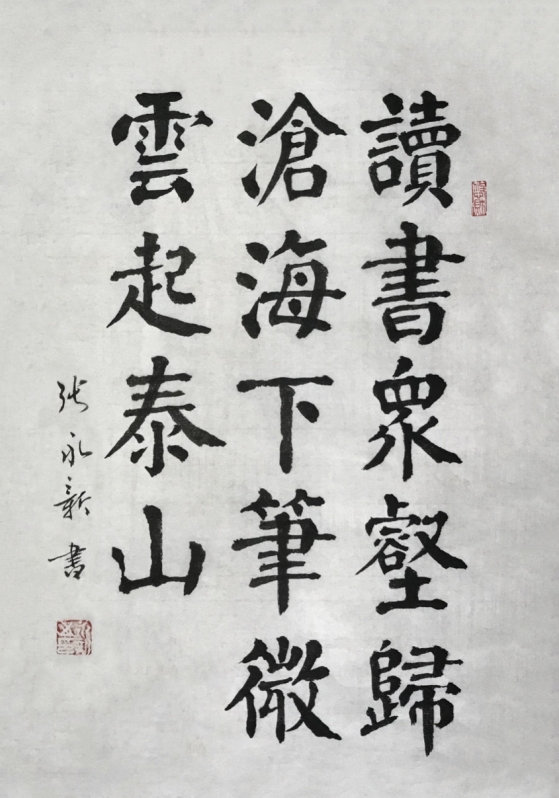 讀書衆壑歸
滄海下筆微
雲起泰山
张永新書